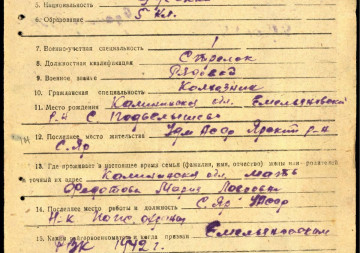 5. Национальность
6. Образование 5 кл.
7. Военно-учетная специальность 1
8. Должностная квалификация Стрелок
9. Военное звание Рядовой
10. Гражданская специальность Колхозник
11. Место рождения Калининская обл. Емельяновский
р-н с.
12. Последнее место жительства Удм АССР р-н
С. Яр
13. Где проживает в настоящее время семья (фамилия, имя, отчество) жены или родителей
и точный их адрес Калининская обл. мать
Федотова Мария
14. Последнее место работы и должность С. Яр
Н-к
15. Каким райгорвоенкоматом и когда призван Емельяновским
РВК 1942 г.